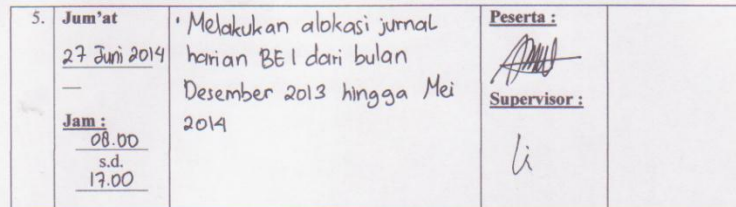 5.
Jum'at
27 Juni 2014
Jam :
08.00
s.d.
17.00
• Melakukan alokasi jurnal
harian BEI dari bulan
Desember 2013 hingga Mei
2014
Peserta :
Supervisor :